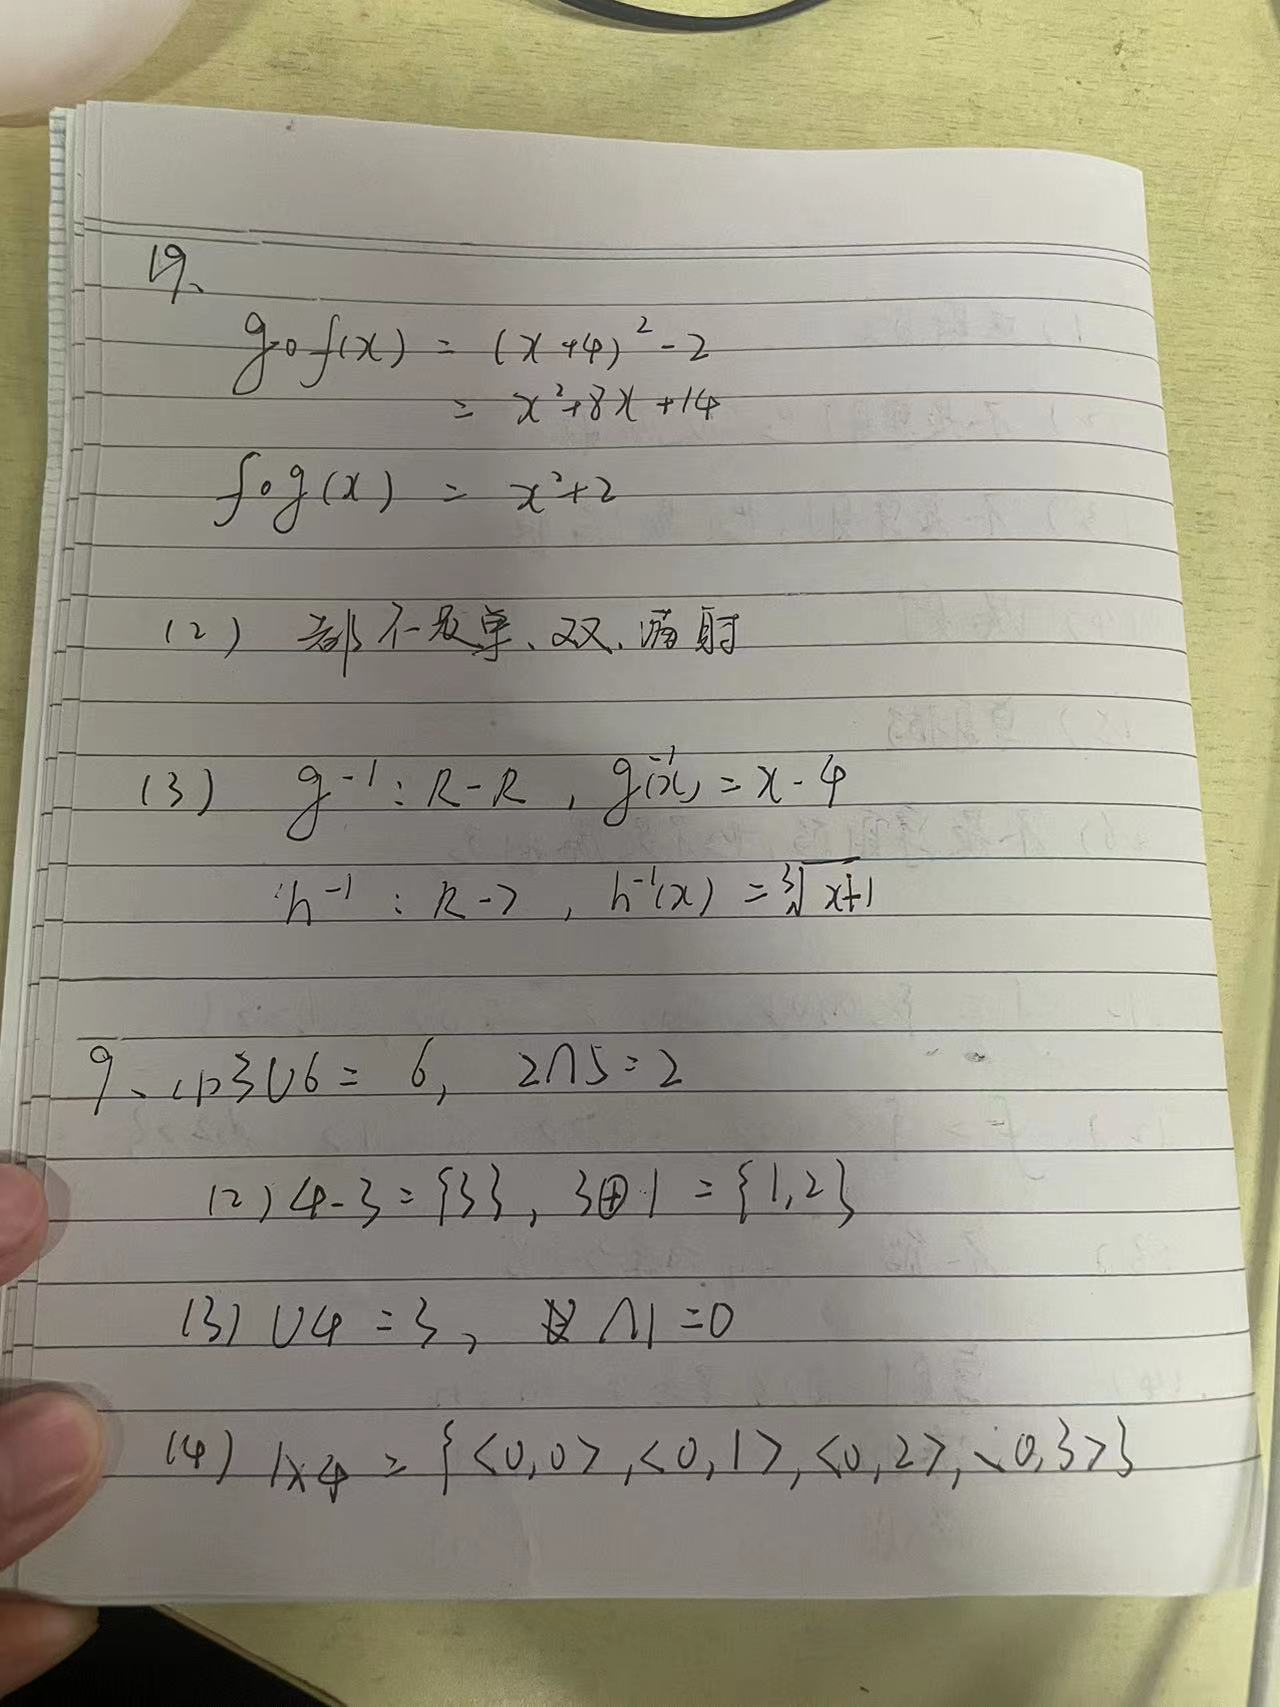 19、
g∘f(x) = (x+4)² - 2
= x²+8x+14
f∘g(x) = x²+2
(2) 都不是单、双、满射
(3) g⁻¹: R-R, g⁻¹(x) = x-4
h⁻¹: R->, h⁻¹(x) = ∛x+1
9、(1) 3∪6= 6, 2∩5=2
(2) 4-3={3}, 3⊕1={1,2}
(3) ∪4=3, ∩1=0
(4) 1×4 = {<0,0>,<0,1>,<0,2>,<0,3>}